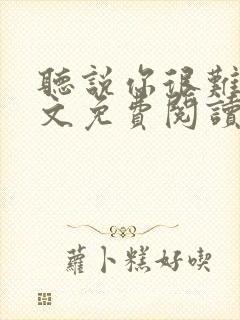 聽說你很難
文免費閱讀
蘿卜糕好喫